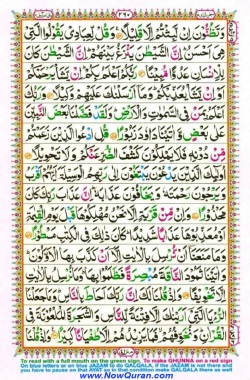 وَتَظُنُّونَ إِنْ لَّبِثْتُمْ إِلَّا قَلِيلًا وَقُلْ لِّعِبَادِي يَقُولُوا الَّتِي
هِيَ أَحْسَنُ إِنَّ الشَّيْطٰنَ يَنْزَغُ بَيْنَهُمْ إِنَّ الشَّيْطٰنَ كَانَ
لِلْإِنْسَانِ عَدُوًّا مُّبِينًا رَبُّكُمْ أَعْلَمُ بِكُمْ إِنْ يَّشَأْ يَرْحَمْكُمْ
أَوْ إِنْ يَّشَأْ يُعَذِّبْكُمْ وَمَا أَرْسَلْنٰكَ عَلَيْهِمْ وَكِيلًا وَرَبُّكَ
أَعْلَمُ بِمَنْ فِي السَّمٰوٰتِ وَالْأَرْضِ وَلَقَدْ فَضَّلْنَا بَعْضَ النَّبِيِّنَ
عَلٰى بَعْضٍ وَّآتَيْنَا دَاوٗدَ زَبُورًا قُلِ ادْعُوا الَّذِينَ زَعَمْتُمْ
مِّنْ دُونِهِ فَلَا يَمْلِكُونَ كَشْفَ الضُّرِّ عَنْكُمْ وَلَا تَحْوِيلًا
أُولٰئِكَ الَّذِينَ يَدْعُونَ يَبْتَغُونَ إِلٰى رَبِّهِمُ الْوَسِيلَةَ أَيُّهُمْ أَقْرَبُ
وَيَرْجُونَ رَحْمَتَهُ وَيَخَافُونَ عَذَابَهُ إِنَّ عَذَابَ رَبِّكَ كَانَ
مَحْذُورًا وَإِنْ مِّنْ قَرْيَةٍ إِلَّا نَحْنُ مُهْلِكُوهَا قَبْلَ يَوْمِ الْقِيٰمَةِ
أَوْ مُعَذِّبُوهَا عَذَابًا شَدِيدًا كَانَ ذٰلِكَ فِي الْكِتٰبِ مَسْطُورًا
وَمَا مَنَعَنَا أَنْ نُّرْسِلَ بِالْآيٰتِ إِلَّا أَنْ كَذَّبَ بِهَا الْأَوَّلُونَ
وَآتَيْنَا ثَمُودَ النَّاقَةَ مُبْصِرَةً فَظَلَمُوا بِهَا وَمَا نُرْسِلُ بِالْآيٰتِ
إِلَّا تَخْوِيفًا وَإِذْ قُلْنَا لَكَ إِنَّ رَبَّكَ أَحَاطَ بِالنَّاسِ وَمَا جَعَلْنَا
الرُّءْيَا الَّتِي أَرَيْنٰكَ إِلَّا فِتْنَةً لِّلنَّاسِ وَالشَّجَرَةَ الْمَلْعُونَةَ فِي
الْقُرْآنِ وَنُخَوِّفُهُمْ فَمَا يَزِيدُهُمْ إِلَّا طُغْيَانًا كَبِيرًا وَإِذْ قُلْنَا
To read with a full mouth on the green sign, To make GHUNNA on a red sign
On blue letters or on blue JAZAM to do QALQALA, If the JAZAM is not there and
you have to pause on that AYAT so in that condition make QALQALA there as well
www.NowQuran.com